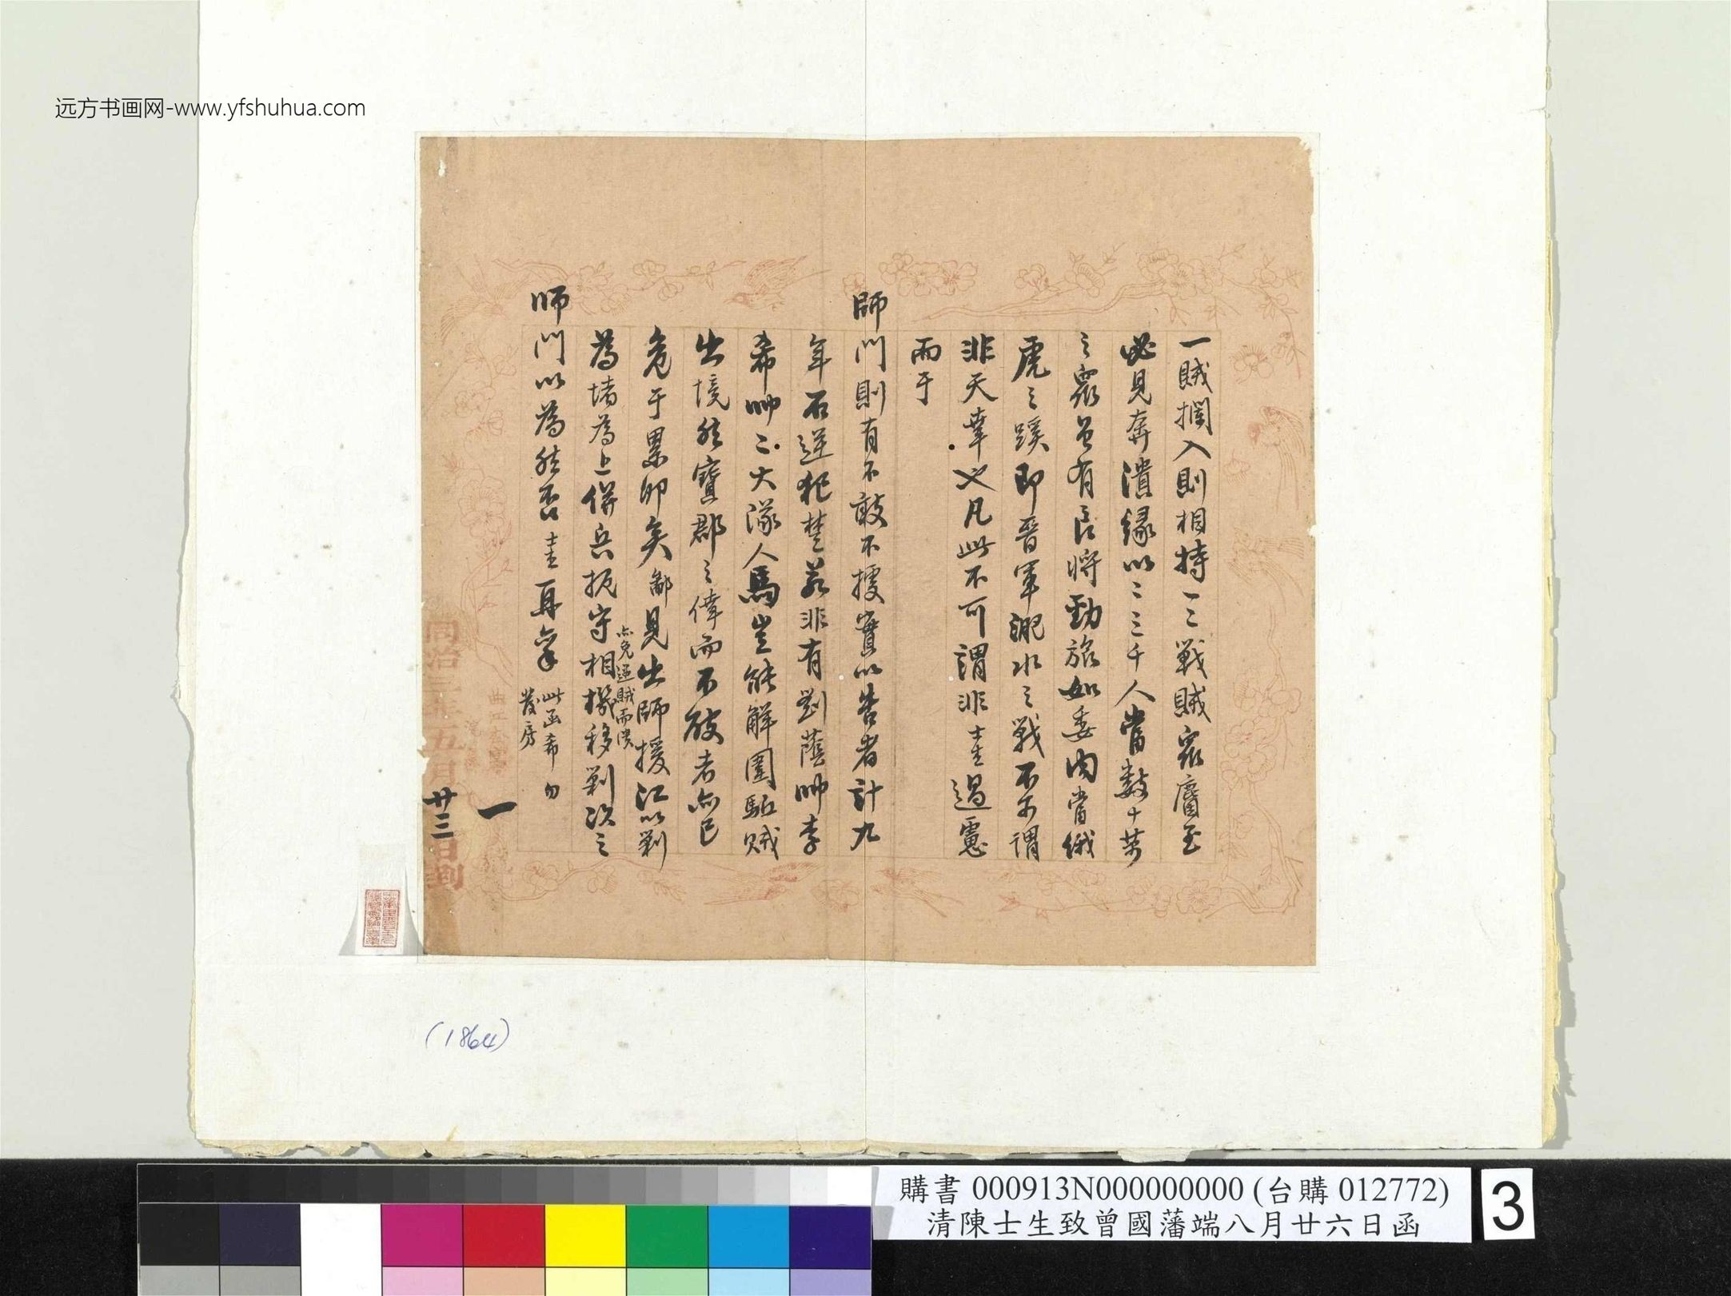 远方书画网-www.yfshuhua.com
一賊攔入則相持一二戰賊眾麕至
必見奔潰緣以二三千人當數十萬
之眾萬有良將勁旅如委肉當餓
虎之蹊即晉軍淝水之戰不可謂
非天幸也凡此不可謂非士生過慮
而于
師門則有不敢不據實以告者計九
年石逆犯楚若非有劉蔭帥李
希帥二大隊人馬豈能解圍驅賊
出境然寶郡之倖而不破者亦已
危于累卵矣鄙見出師援江以剿
亦免逆賊而
為堵為上併兵扼守相機移剿次之
師門以為然否士生再稟
此函希勿
發房
一
同治三年五月廿三日到
(1864)
購書 000913N000000000 (台購 012772)
清陳士生致曾國藩端八月廿六日函
3